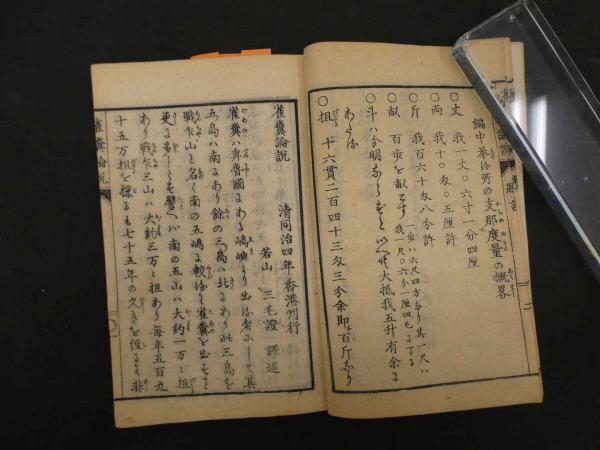 編中挙る所の支那度量の概略
〇丈 我一丈〇六寸一分四厘
〇両 我十〇匁〇五厘許
〇斤 我百六十匁八分許
〇畝 百歩を畝とす 一歩ハ六尺四方なり其一尺ハ我一尺〇六分一厘四毛に丁る
〇斗ハ分明ならずといへども大抵我五升有余に
あたる
〇担 十六貫二百四十三匁三分余即百斤なり
雀糞論説
清同治四年 香港刋行
若山 三毛證 譯述
雀糞ハ奥国にある嶋嶼より出る者にして其
五島ハ南にあり餘の三島ハ北にあり此三島を
戦乍山と名く南の五嶋に較れバ雀糞を出すこと
更に多しとす譬ヘバ南の五山ハ大約一万〻担
あり戦乍三山ハ大約三万〻担あり毎年五百九
十五万担を採るも七十五年の久きを経るに非
雀糞論説